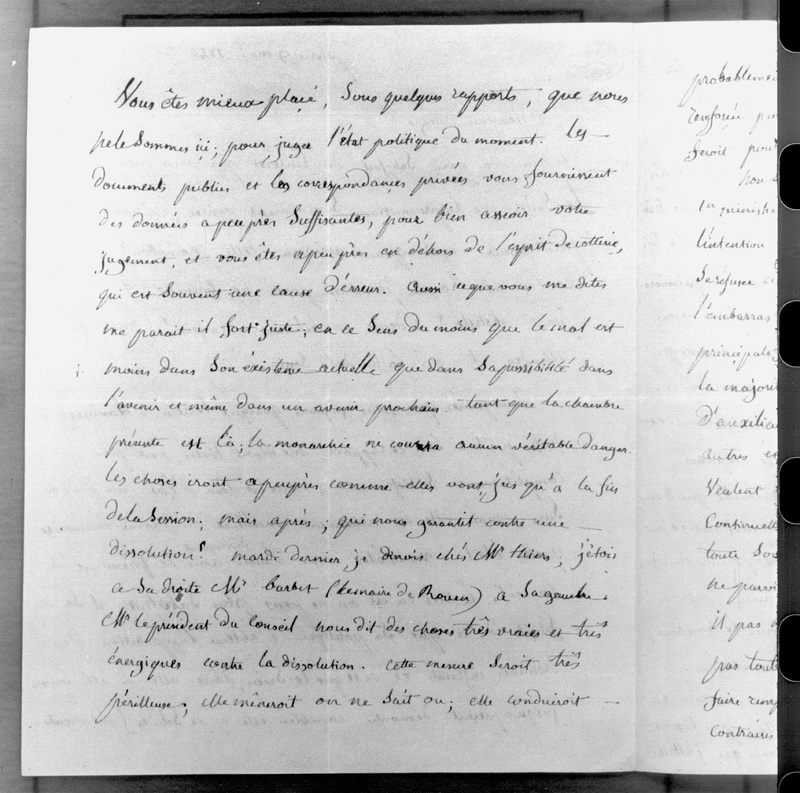 Vous êtes mieux placé, sous quelques rapports, que nous
ne le sommes ici; pour juger l'état politique du moment. Les
documents publics et les correspondances privées vous fournissent
des données apeuprès suffisantes, pour bien asseoir votre
jugement, et vous êtes apeuprès en déhors de l'esprit de cotterie,
qui est souvent une cause d'érreur. Aussi ceque vous me dites
me parait il fort juste; en ce sens du moins que le mal est
moins dans son éxistence actuelle que dans sa possibilité dans
l'avenir et même dans un avenir prochain. tant que la chambre
présente est là; la monarchie ne courra aucun véritable danger.
les choses iront apeuprès comme elles vont jus qu'à la fin
de la session; mais après; qui nous garantit contre une
dissolution? mardi dernier, je dinois chés Mr thiers; j'étois
a sa droite Mr barbet (le maire de Rouen) à sa gauche.
Mr le président du Conseil nous dit des choses très vraies et très
énergiques contre la dissolution. cette mesure seroit très
périlleuse; elle mèneroit on ne sait ou; elle conduiroit
probableme
renforcée pa
seroit peut
non
un ministè
l'intention
se refuser
l'embarras
principale
la majori
d'auxiliai
autres et
veulent
Continuell
toute
ne
il pas
pas tout
faire
contraires